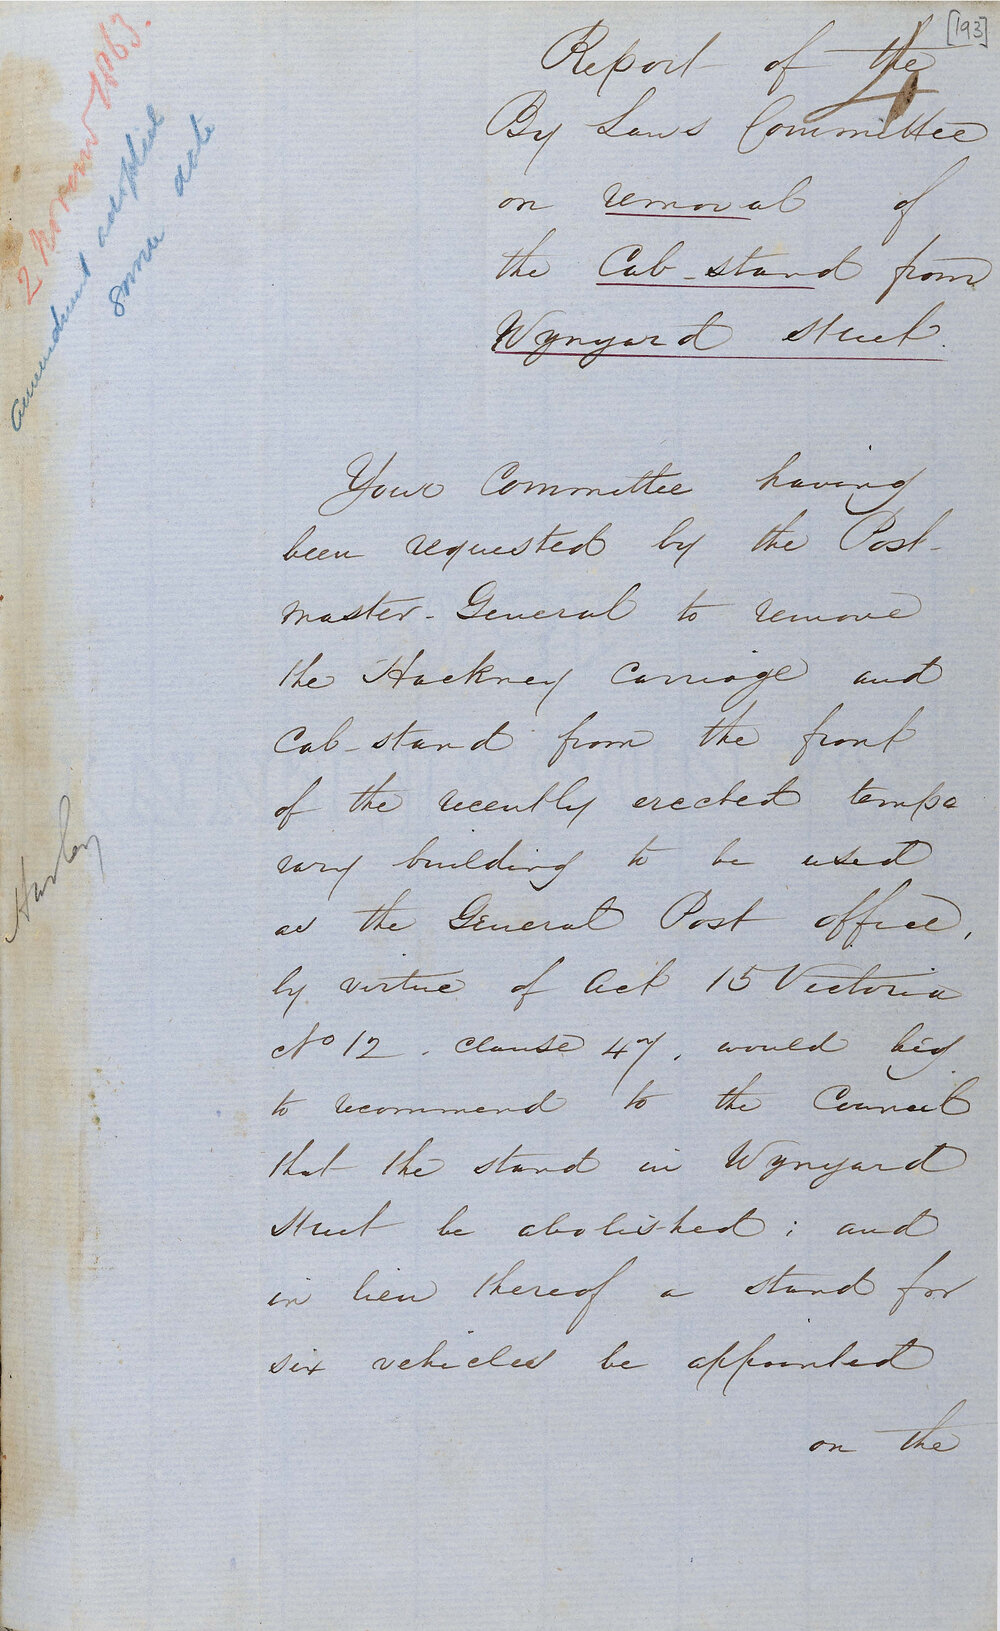 [193]
2 November 1863.
amendment adopted
same date
Report of the
By Laws Committee
on removal of
the Cab-stand from
Wynyard Street.
Your Committee having
been requested by the Post-
master-General to remove
the Hackney Carriage and
Cab-stand from the front
of the recently erected tempo
rary building to be used
as the General Post office,
by virtue of Act 15 Victoria
No 12. Clause 47, would beg
to recommend to the Council
that the stand in Wynyard
Street be abolished; and
in lieu thereof a stand for
six vehicles be appointed
on the